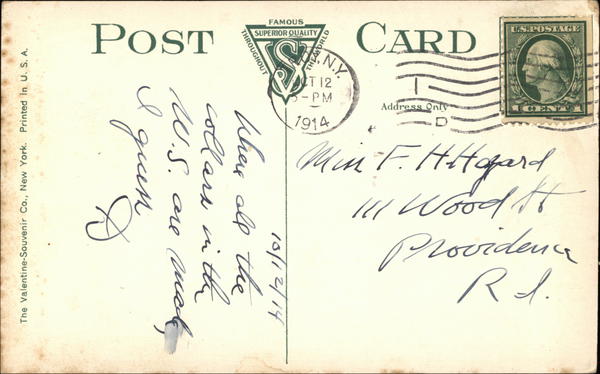 POST CARD
FAMOUS
SUPERIOR QUALITY
THROUGHOUT THE WORLD
VS
N.Y.
OCT 12
5-PM
1914
1
D
U.S. POSTAGE
1 CENT 1
Address Only
The Valentine-Souvenir Co., New York. Printed in U. S. A.
10/12/14
Where all the
collars in the
U.S. are made,
I guess
Miss F. H. Hazard
111 Wood St
Providence
R.I.